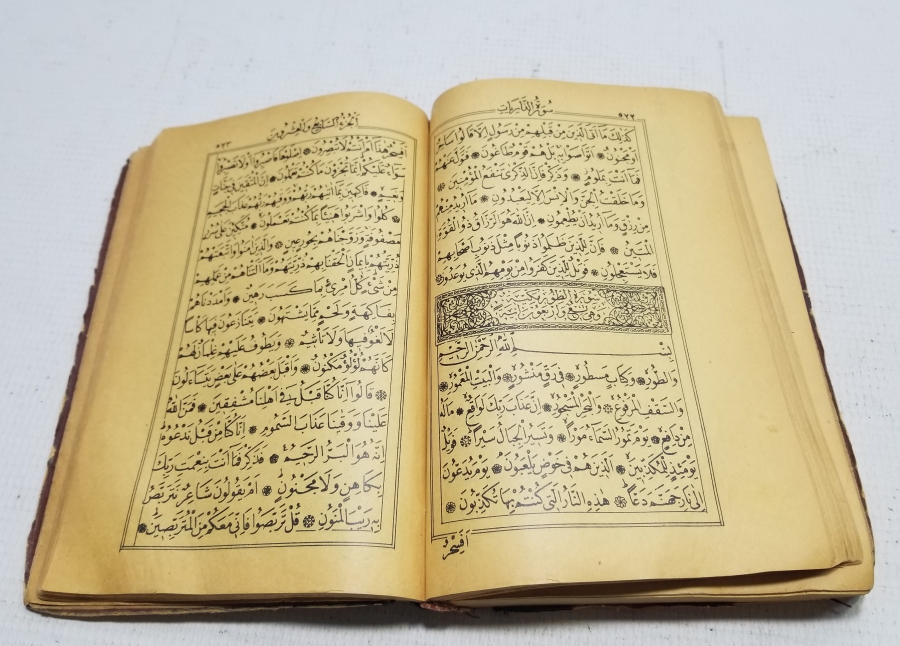 سورة الذاريات
٥٢٢
كَذٰلِكَ مَا اَتَى الَّذِينَ مِنْ قَبْلِهِمْ مِنْ رَسُولٍ اِلَّا قَالُوا سَاحِرٌ
اَوْ مَجْنُونٌ ❋ اَتَوَاصَوْا بِهِ بَلْ هُمْ قَوْمٌ طَاغُونَ ❋ فَتَوَلَّ عَنْهُمْ
فَمَا اَنْتَ بِمَلُومٍ ❋ وَذَكِّرْ فَاِنَّ الذِّكْرٰى تَنْفَعُ الْمُؤْمِنِينَ ❋
وَمَا خَلَقْتُ الْجِنَّ وَالْاِنْسَ اِلَّا لِيَعْبُدُونِ ❋ مَا اُرِيدُ مِنْهُمْ
مِنْ رِزْقٍ وَمَا اُرِيدُ اَنْ يُطْعِمُونِ ❋ اِنَّ اللّٰهَ هُوَ الرَّزَّاقُ ذُو الْقُوَّةِ
الْمَتِينُ ❋ فَاِنَّ لِلَّذِينَ ظَلَمُوا ذَنُوبًا مِثْلَ ذَنُوبِ اَصْحَابِهِمْ
فَلَا يَسْتَعْجِلُونِ ❋ فَوَيْلٌ لِلَّذِينَ كَفَرُوا مِنْ يَوْمِهِمُ الَّذِي يُوعَدُونَ ❋
سورة الطور مكية
وهي تسع واربعون آية
بِسْمِ اللّٰهِ الرَّحْمٰنِ الرَّحِيمِ
وَالطُّورِ ❋ وَكِتَابٍ مَسْطُورٍ ❋ فِي رَقٍّ مَنْشُورٍ ❋ وَالْبَيْتِ الْمَعْمُورِ ❋
وَالسَّقْفِ الْمَرْفُوعِ ❋ وَالْبَحْرِ الْمَسْجُورِ ❋ اِنَّ عَذَابَ رَبِّكَ لَوَاقِعٌ ❋ مَا لَهُ
مِنْ دَافِعٍ ❋ يَوْمَ تَمُورُ السَّمَاءُ مَوْرًا ❋ وَتَسِيرُ الْجِبَالُ سَيْرًا ❋ فَوَيْلٌ
يَوْمَئِذٍ لِلْمُكَذِّبِينَ ❋ الَّذِينَ هُمْ فِي خَوْضٍ يَلْعَبُونَ ❋ يَوْمَ يُدَعُّونَ
اِلٰى نَارِ جَهَنَّمَ دَعًّا ❋ هٰذِهِ النَّارُ الَّتِي كُنْتُمْ بِهَا تُكَذِّبُونَ ❋
اَفَسِحْرٌ
الجزء السابع والعشرون
٥٢٣
اَفَسِحْرٌ هٰذَا اَمْ اَنْتُمْ لَا تُبْصِرُونَ ❋ اِصْلَوْهَا فَاصْبِرُوا اَوْ لَا تَصْبِرُوا
سَوَاءٌ عَلَيْكُمْ اِنَّمَا تُجْزَوْنَ مَا كُنْتُمْ تَعْمَلُونَ ❋ اِنَّ الْمُتَّقِينَ فِي جَنَّاتٍ
وَنَعِيمٍ ❋ فَاكِهِينَ بِمَا اٰتٰيهُمْ رَبُّهُمْ وَوَقٰيهُمْ رَبُّهُمْ عَذَابَ الْجَحِيمِ
❋ كُلُوا وَاشْرَبُوا هَنِيئًا بِمَا كُنْتُمْ تَعْمَلُونَ ❋ مُتَّكِئِينَ عَلٰى سُرُرٍ
مَصْفُوفَةٍ وَزَوَّجْنَاهُمْ بِحُورٍ عِينٍ ❋ وَالَّذِينَ اٰمَنُوا وَاتَّبَعَتْهُمْ
ذُرِّيَّتُهُمْ بِاِيمَانٍ اَلْحَقْنَا بِهِمْ ذُرِّيَّتَهُمْ وَمَا اَلَتْنَاهُمْ مِنْ عَمَلِهِمْ
مِنْ شَيْءٍ كُلُّ امْرِئٍ بِمَا كَسَبَ رَهِينٌ ❋ وَاَمْدَدْنَاهُمْ
بِفَاكِهَةٍ وَلَحْمٍ مِمَّا يَشْتَهُونَ ❋ يَتَنَازَعُونَ فِيهَا كَاْسًا
لَا لَغْوٌ فِيهَا وَلَا تَاْثِيمٌ ❋ وَيَطُوفُ عَلَيْهِمْ غِلْمَانٌ لَهُمْ
كَاَنَّهُمْ لُؤْلُؤٌ مَكْنُونٌ ❋ وَاَقْبَلَ بَعْضُهُمْ عَلٰى بَعْضٍ يَتَسَاءَلُونَ
❋ قَالُوا اِنَّا كُنَّا قَبْلُ فِي اَهْلِنَا مُشْفِقِينَ ❋ فَمَنَّ اللّٰهُ
عَلَيْنَا وَوَقٰينَا عَذَابَ السَّمُومِ ❋ اِنَّا كُنَّا مِنْ قَبْلُ نَدْعُوهُ
اِنَّهُ هُوَ الْبَرُّ الرَّحِيمُ ❋ فَذَكِّرْ فَمَا اَنْتَ بِنِعْمَتِ رَبِّكَ
بِكَاهِنٍ وَلَا مَجْنُونٍ ❋ اَمْ يَقُولُونَ شَاعِرٌ نَتَرَبَّصُ
بِهِ رَيْبَ الْمَنُونِ ❋ قُلْ تَرَبَّصُوا فَاِنِّي مَعَكُمْ مِنَ الْمُتَرَبِّصِينَ ❋